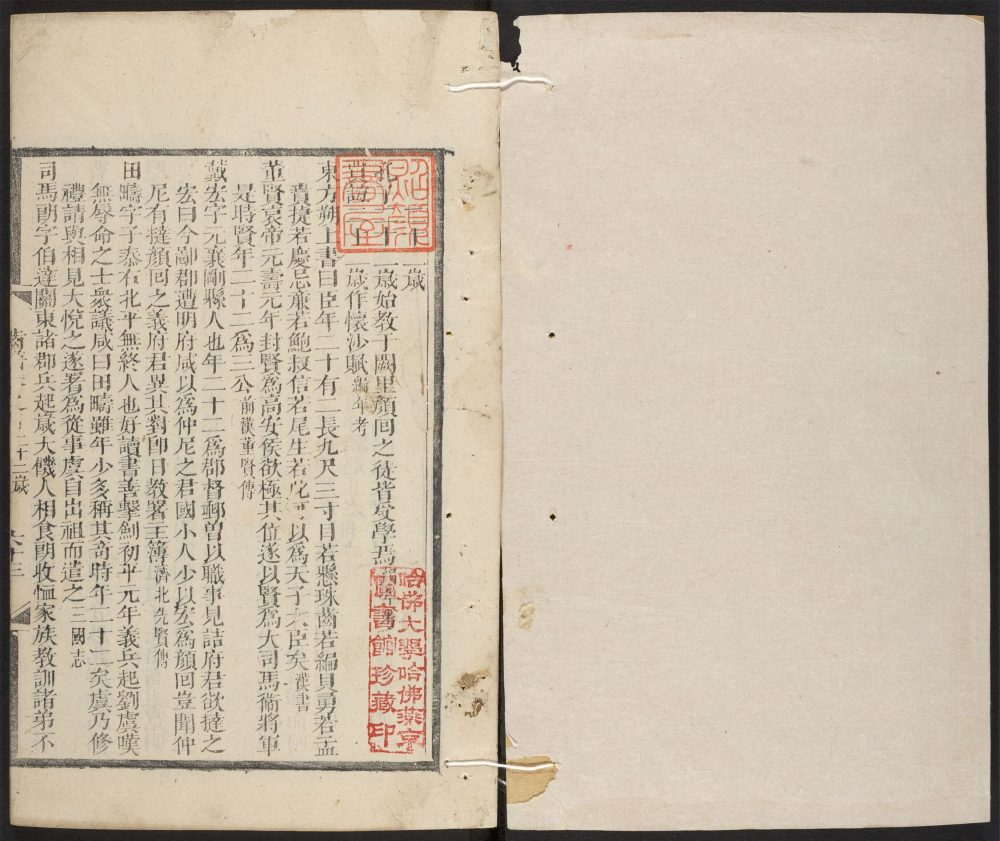 二歲
孔子二十二歲始教于闕里顏回之徒皆受學焉
賈誼二十二歲作懷沙賦編年考
東方朔上書曰臣年二十有二長九尺三寸目若懸珠齒若編貝勇若孟
賁捷若慶忌廉若鮑叔信若尾生若此可以為天子大臣矣漢書
董賢哀帝元壽元年封賢為高安侯欲極其位遂以賢為大司馬衞將軍
是時賢年二十二為三公前漢董賢傳
戴宏字元襄剛縣人也年二十二為郡督郵曽以職事見詰府君欲撻之
宏曰今鄙郡遭明府咸以為仲尼之君國小人少以宏為顏回豈聞仲
尼有撻顏回之義府君異其對即日教署主簿濟北先賢傳
田疇字子泰右北平無終人也好讀書善擊劍初平元年義兵起劉虞嘆
無辱命之士衆議咸曰田疇雖年少多稱其奇時年二十二矣虞乃修
禮請與相見大悅之遂署為從事虞自出祖而遣之三國志
司馬朗字伯達關東諸郡兵起歲大饑人相食朗收恤家族教訓諸弟不
二十二歲
哈佛大學哈佛燕京
圖書館珍藏印